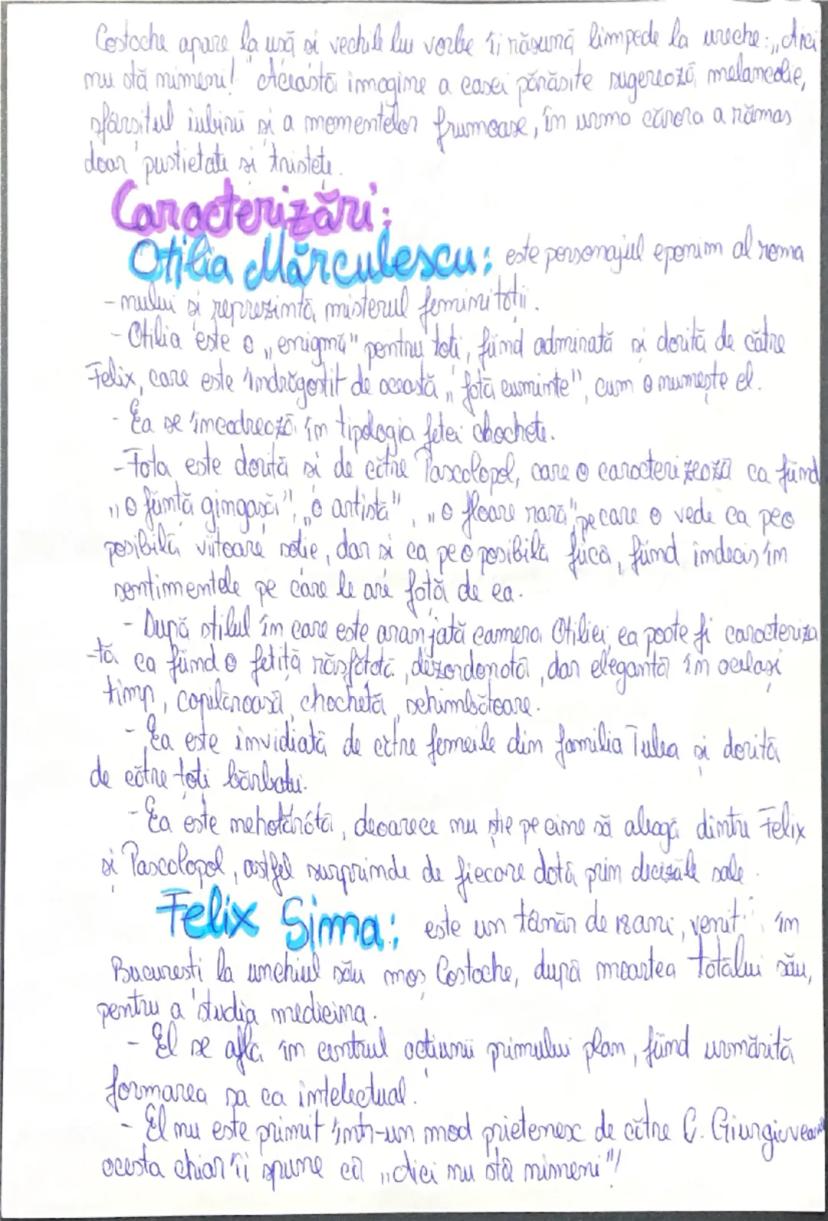 Costache apare la ușă și vechile lui vorbe îi răsună limpede la ureche: „Aici
nu stă nimeni!" Această imagine a casei părăsite sugerează melancolie,
sfârșitul iubirii și a momentelor frumoase, în urma cărora a rămas
doar pustietate și tristețe.
Caracterizări:
Otilia Mărculescu: este personajul eponim al roma
-nului și reprezintă misterul feminității.
- Otilia este o „enigmă" pentru toți, fiind admirată și dorită de către
Felix, care este îndrăgostit de această „fată cuminte", cum o numește el.
- Ea se încadrează în tipologia fetei chochete.
- Fata este dorită și de către Pascalopol, care o caracterizează ca fiind
„o ființă gingașă", „o artistă", „o floare rară" pe care o vede ca pe o
posibilă viitoare soție, dar și ca pe o posibilă fiică, fiind indecis în
sentimentele pe care le are față de ea.
- După stilul în care este aranjată camera Otiliei ea poate fi caracteriza
-tă ca fiind o fetiță răsfățată, dezordonată, dar elegantă în același
timp, copilăroasă, chochetă, schimbătoare.
- Ea este invidiată de către femeile din familia Tulea și dorită
de către toți bărbații.
- Ea este nehotărâtă, deoarece nu știe pe cine să aleagă dintre Felix
și Pascalopol, astfel surprinde de fiecare dată prin deciziile sale.
Felix Sima: este un tânăr de 18 ani, venit în
București la unchiul său moș Costache, după moartea tatălui său,
pentru a studia medicina.
- El se află în centrul acțiunii primului plan, fiind urmărită
formarea sa ca intelectual.
- El nu este primit într-un mod prietenesc de către C. Giurgiuveanu
acesta chiar îi spune că „aici nu stă nimeni"!